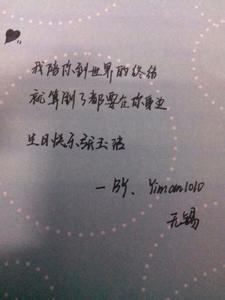 我陪你到世界的终结
就算倒了都要在你身边
生日快乐张玉洁
—BY、Yiman1010
无锡